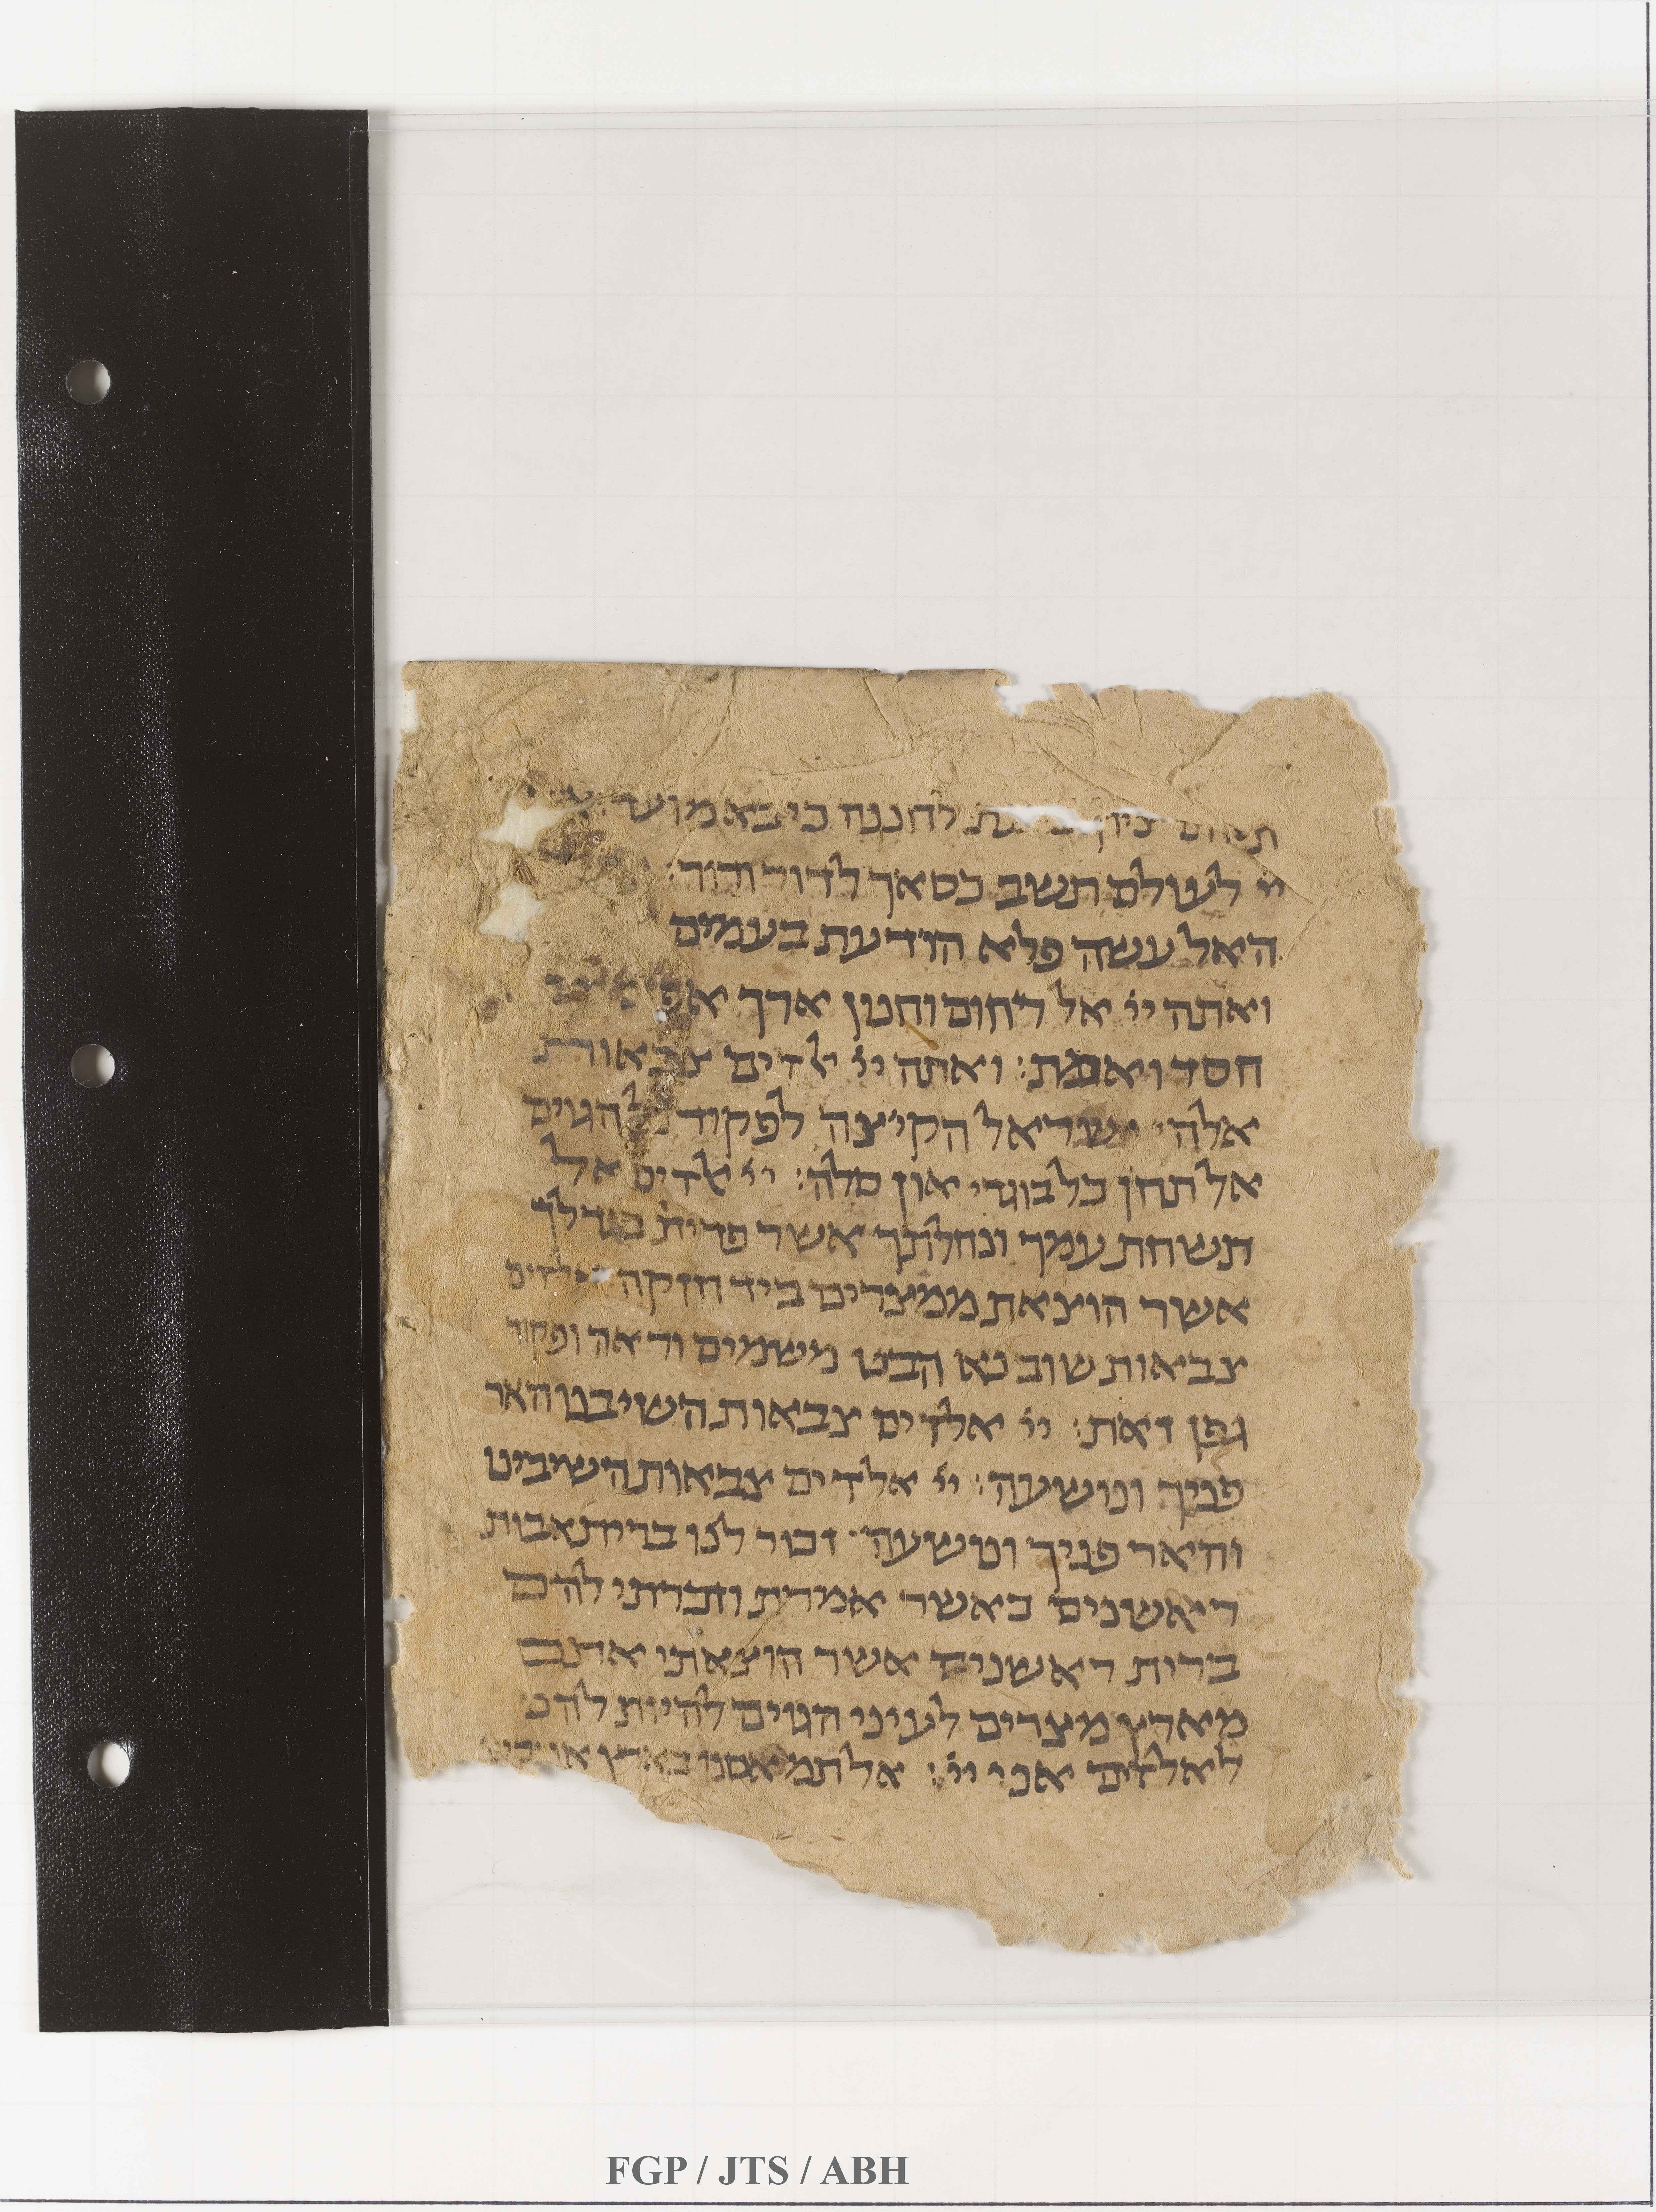 לחננה כי בא מוע
ייי לעולם תשב כסאך לדור ודור:
האל עשה פלא הודעת בעמים
ואתה ייי אל רחום וחנון ארך
חסד ואמת: ואתה ייי אלדים צבאות
אלהי ישראל הקיצה לפקוד כל הגוים
אל תחן כל בוגדי און סלה: ייי אלדים אל
תשחת עמך ונחלתך אשר פדית בגדלך
אשר הוצאת ממצרים ביד חזקה אלדים
צבאות שוב נא הבט משמים וראה ופקד
גפן זאת: ייי אלדים צבאות השיבנו האר
פניך ונושעה: ייי אלדים צבאות השיבינו
והיאר פניך ונושעה: זכור לנו ברית אבות
ריאשנים כאשר אמרת וזכרתי להם
ברית ראשנים אשר הוצאתי אתם
מארץ מצרים לעיני הגוים להיות להם
לאלדים אני ייי: אל תמאסנו בארץ
FGP / JTS / ABH